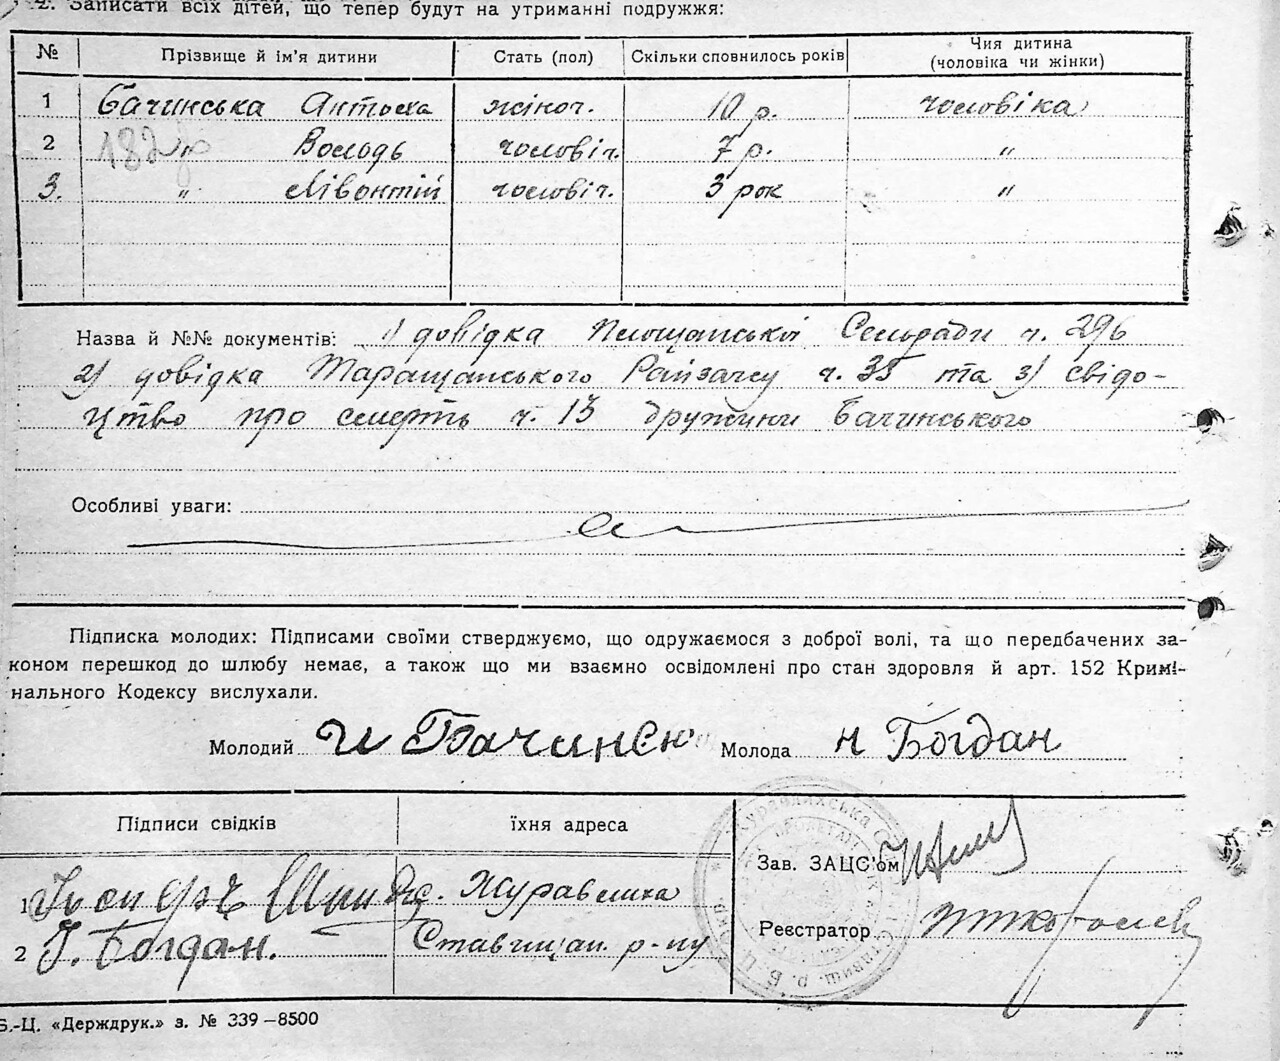 2. Записати всіх дітей, що тепер будут на утриманні подружжя:
№ Прізвище й ім'я дитини Стать (пол) Скільки сповнилось років Чия дитина (чоловіка чи жінки)
1 Бачинська Антося жіноч. 10 р. чоловіка
2 " Володь чоловіч. 7 р. "
182
3. " Лівонтій чоловіч. 3 рок "
Назва й №№ документів: 1) довідка Площанської Сельради ч. 296
2) довідка Таращанського Райзагсу ч. 35 та 3) свідо-
цтво про смерть ч. 13 дружини Бачинського
Особливі уваги:
Підписка молодих: Підписами своїми стверджуємо, що одружаємося з доброї волі, та що передбачених за-
коном перешкод до шлюбу немає, а також що ми взаємно освідомлені про стан здоровля й арт. 152 Кримі-
нального Кодексу вислухали.
Молодий и Бачинсю Молода Н Богдан
Підписи свідків їхня адреса
Зав. ЗАЦС'ом
1 с. Журавлиха
Реєстратор
2 І. Богдан. Ставищан. р-ну
Журавлихська
Ставищ. р. Б. Ц.
Б.-Ц. «Держдрук.» з. № 339—8500